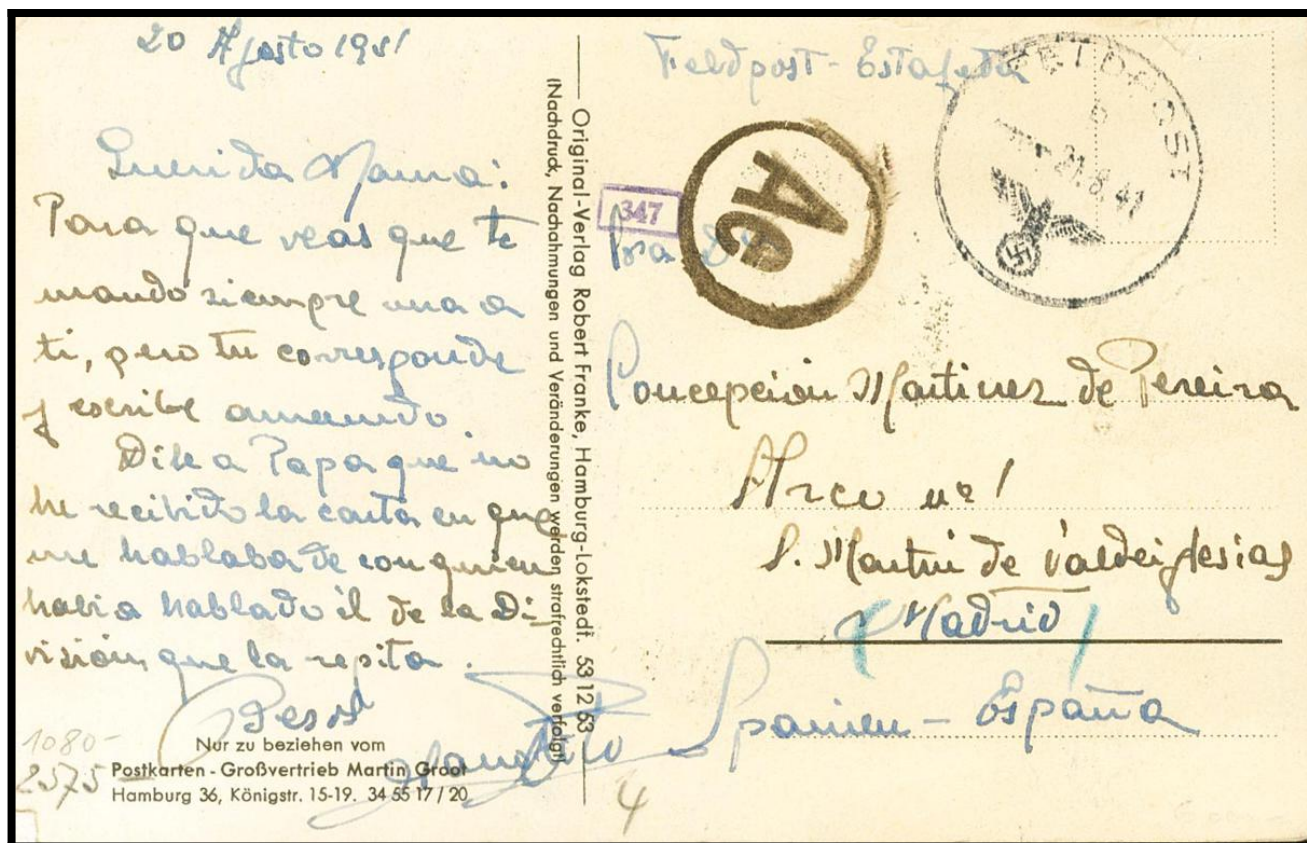 20 Agosto 1941
Querida Mama:
Para que veas que te
mando siempre una a
ti, pero tu corresponde
y escribe amenudo.
Dile a Papa que no
he recibido la carta en que
me hablaba de con quien
habia hablado él de la Di-
visión, que la repita.
Nur zu beziehen vom
Postkarten - Großvertrieb Martin Groot
Hamburg 36, Königstr. 15-19. 34 55 17 / 20
1080-
2575
Original-Verlag Robert Franke, Hamburg-Lokstedt. 53 12 53
(Nachdruck, Nachahmungen und Veränderungen werden strafrechtlich verfolgt)
Feldpost - Estafeta
FELDPOST
21.8.41
347
Ac
Concepción Martinez de Pereira
Arco nº 1
S. Martin de Valdeiglesias
(Madrid)
Spanien - España
4